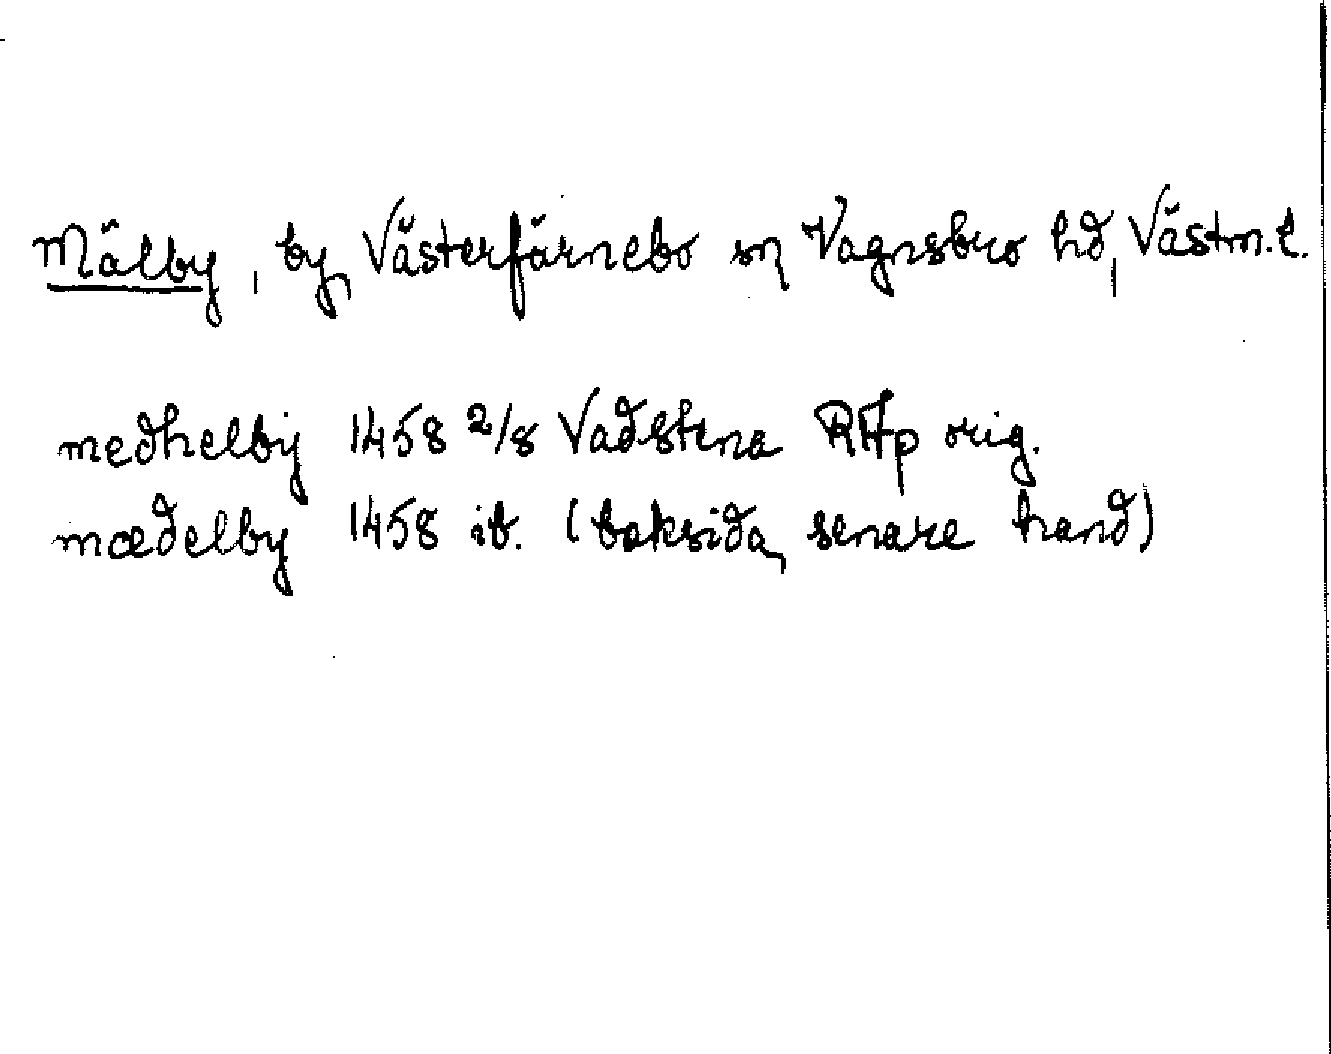 Mälby, by, Västerfärnebo sn, Vagnsbro hd, Västm.l.
medhelby 1458 2/8 Vadstena RAp orig.
mædelby 1458 ib. (baksida, senare hand)